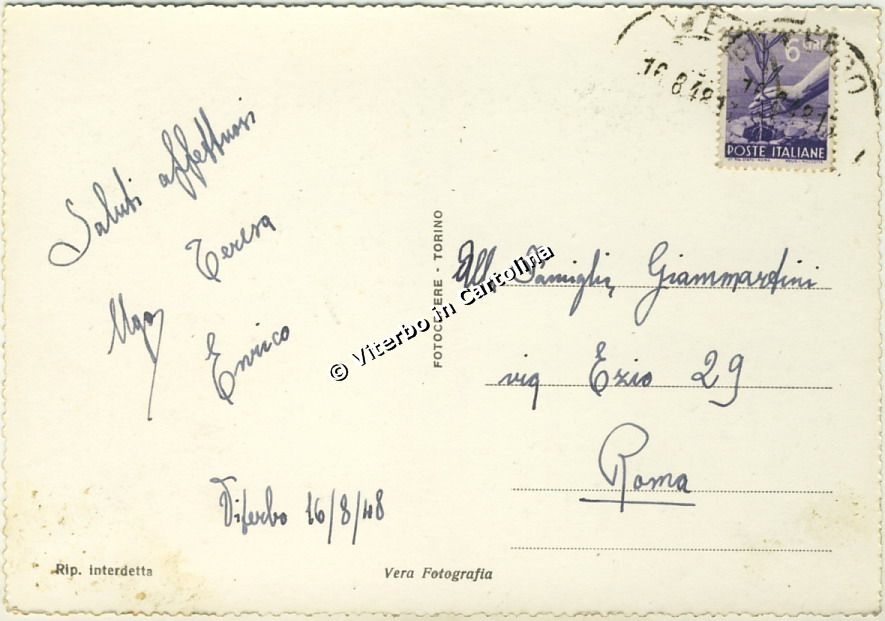 Saluti affettuosi
Teresa
Ugo
Enrico
Viterbo 16/8/48
Rip. interdetta
Vera Fotografia
FOTOCELERE - TORINO
© Viterbo in Cartolina
6 LIRE
POSTE ITALIANE
VITERBO
16.8.48
Alla Famiglia Giammartini
via Ezio 29
Roma